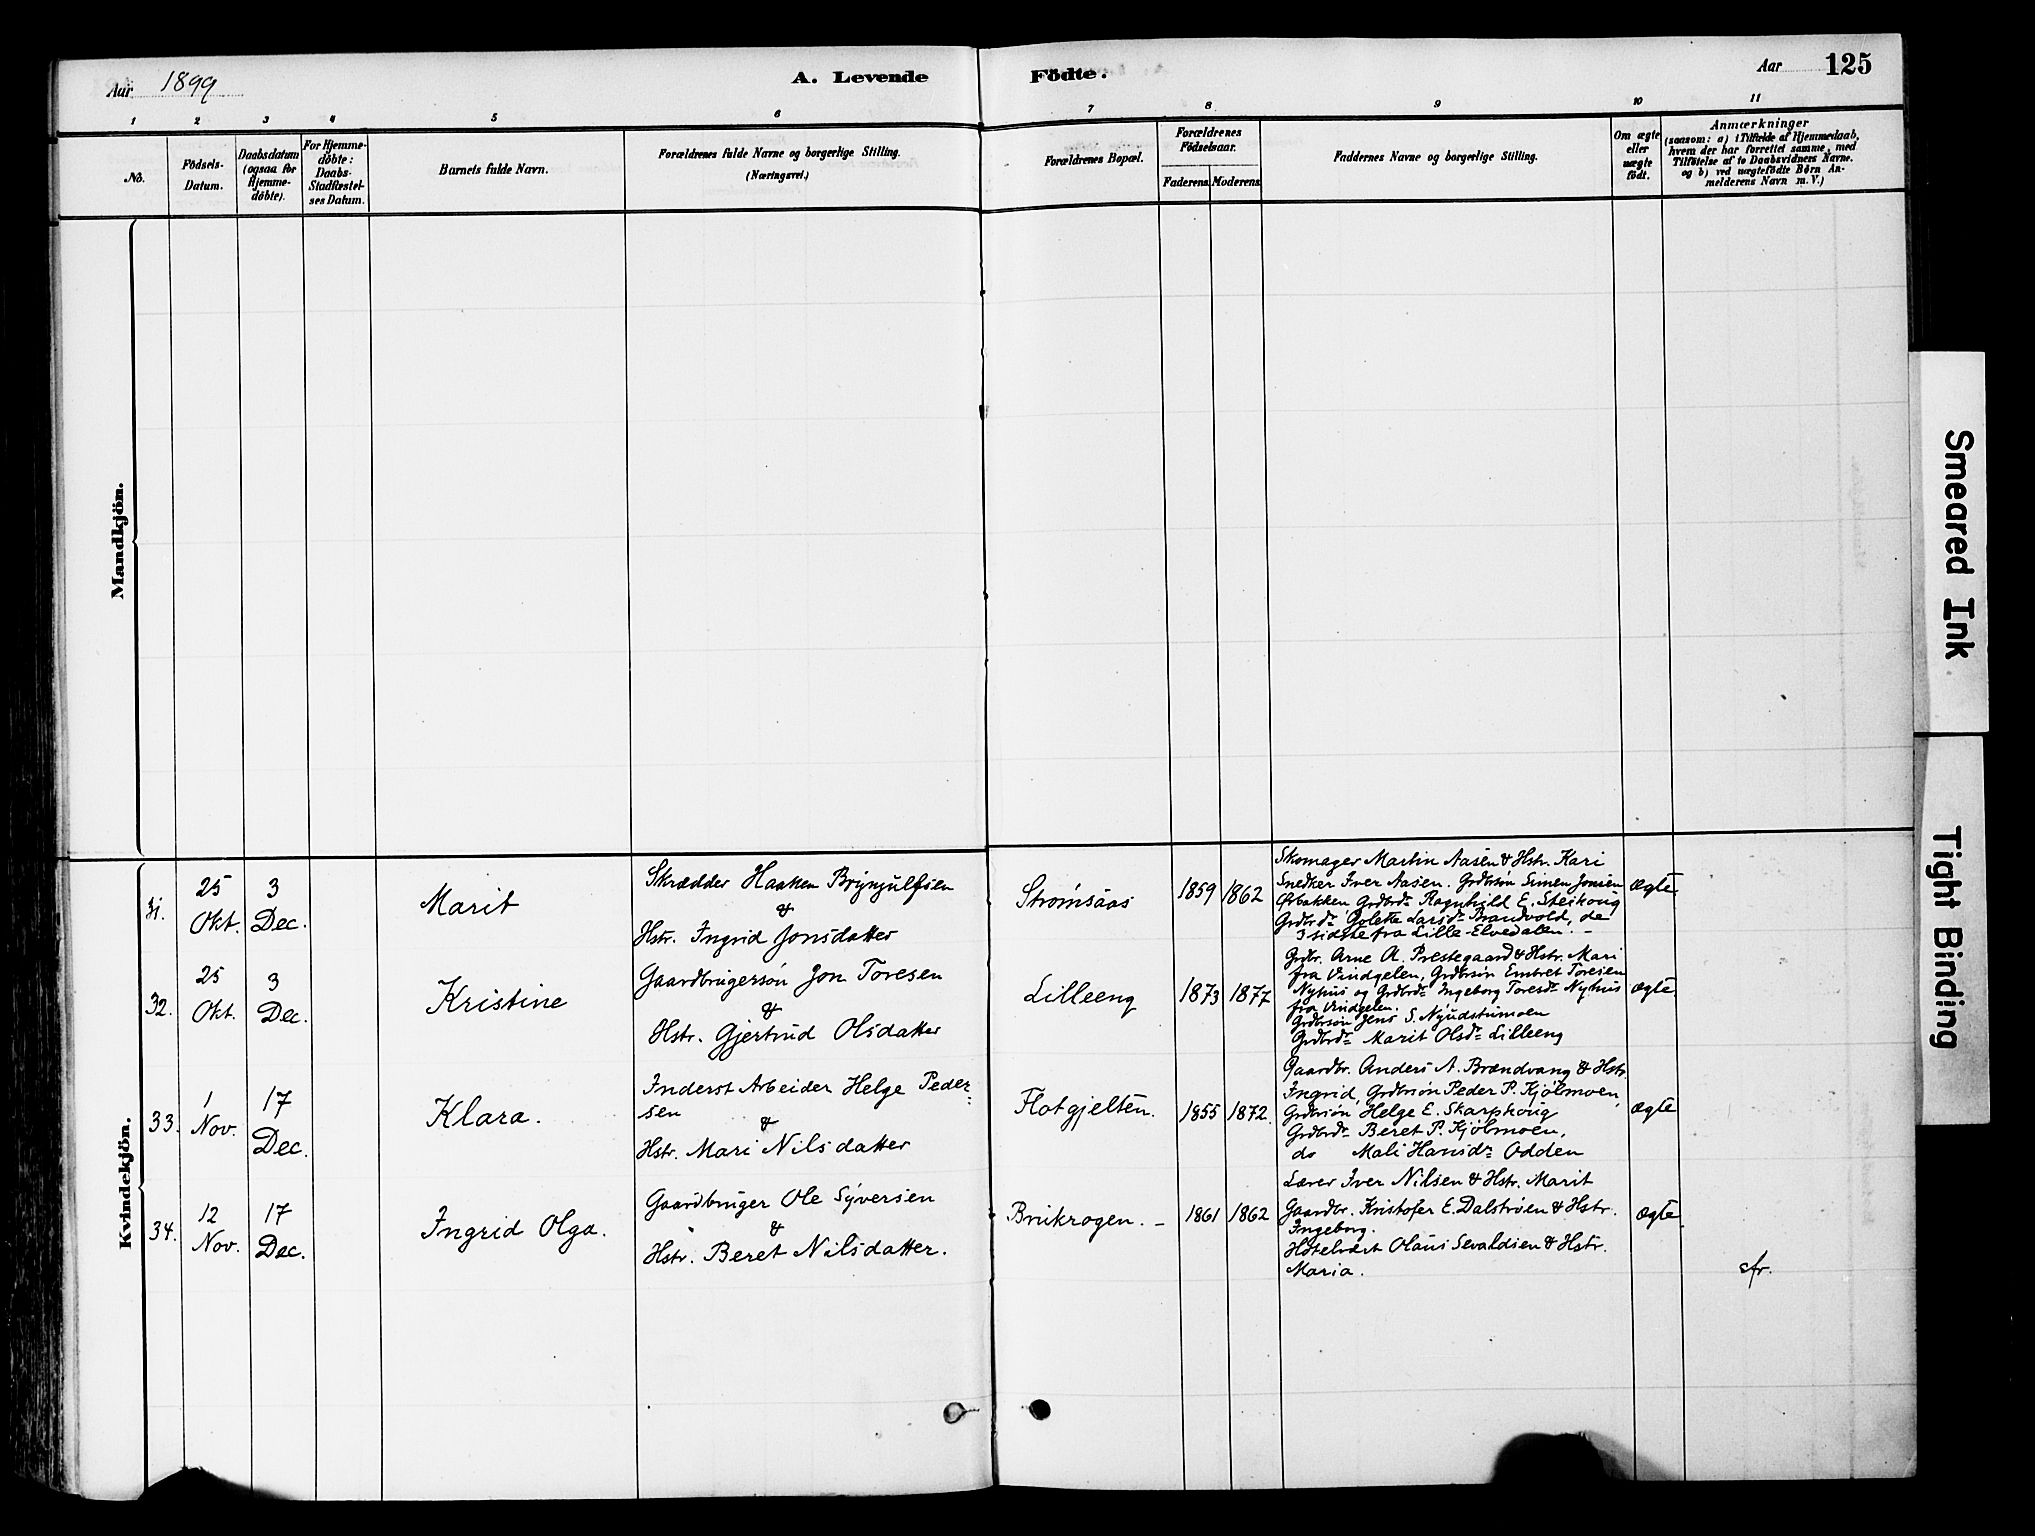 Aar 1899
A. Levende
Födte.
Aar
125
1
2
3
4
5
6
7
8
9
10
11
No.
Födsels-
Datum.
Daabsdatum
(ogsaa for
Hjemme-
döbte).
For Hjemme-
döbte:
Daabs-
Stadfæstel-
ses Datum.
Barnets fulde Navn.
Forældrenes fulde Navne og borgerlige Stilling.
(Næringsvei.)
Forældrenes Bopæl.
Forældrenes
Födselsaar.
Faderens.
Moderens.
Faddernes Navne og borgerlige Stilling.
Om ægte
eller
uægte
födt.
Anmærkninger
(saasom: a) i Tilfælde af Hjemmedaab,
hvem der har forrettet samme, med
Tilföielse af to Daabsvidners Navne.
og b) ved uægtefödte Börn An-
melderens Navn m. V.)
Mandkjön.
Kvindekjön.
31.
25
Okt.
3
Dec.
Marit
Skrædder Haaken Brynjulfsen
&
Hstr. Ingrid Jonsdatter
Strømsaas
1859
1862
Skomager Martin Aasen & Hstr. Kari
Snedker Iver Aasen. Grdbrsøn Simen Jonsen
Ørbakken Grdbrdr. Ragnhild E. Steihoug
Grdbrdr. Golette Larsdr. Brandvold, de
3 sidste fra Lille-Elvedalen. -
ægte
32.
25
Okt.
3
Dec.
Kristine
Gaardbrugersøn Jon Toresen
&
Hstr. Gjertrud Olsdatter
Lilleeng
1873
1877
Grdbr. Arne A. Prestegaard & Hstr. Mari
fra Vindgelen, Grdbrsøn Embret Toresen
Nyhus og Grdbrdr. Ingeborg Toresdr. Nyhus
fra Vindgelen.
Grdbrsøn Jens S. Nyudstumoen
Grdbrdr. Marit Olsdr. Lilleeng
ægte
33.
1
Nov.
17
Dec.
Klara.
Inderst Arbeider Helge Peder-
sen
&
Hstr. Mari Nilsdatter
Flotgjelten.
1855
1872.
Gaardbr. Anders A. Brændvang & Hstr.
Ingrid, Grdbrsøn Peder P. Kjølmoen,
Grdbrsøn Helge E. Skarphoug
Grdbrdr. Beret P. Kjølmoen,
do Mali Hansdr. Odden
ægte
34.
12
Nov.
17
Dec.
Ingrid Olga.
Gaardbruger Ole Syversen
&
Hstr. Beret Nilsdatter.
Brukrogen. -
1861
1862
Lærer Iver Nilsen & Hstr. Marit
Gaardbr. Kristofer E. Dalstrøen & Hstr.
Ingeborg.
Hotelvært Olaus Sevaldsen & Hstr.
Maria.
ægte.
cfr.
Smeared Ink
Tight Binding